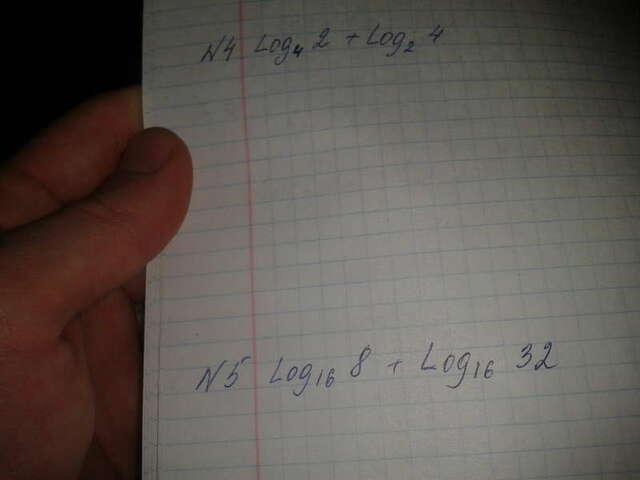 N4 Log₄ 2 + Log₂ 4
N5 Log₁₆ 8 + Log₁₆ 32